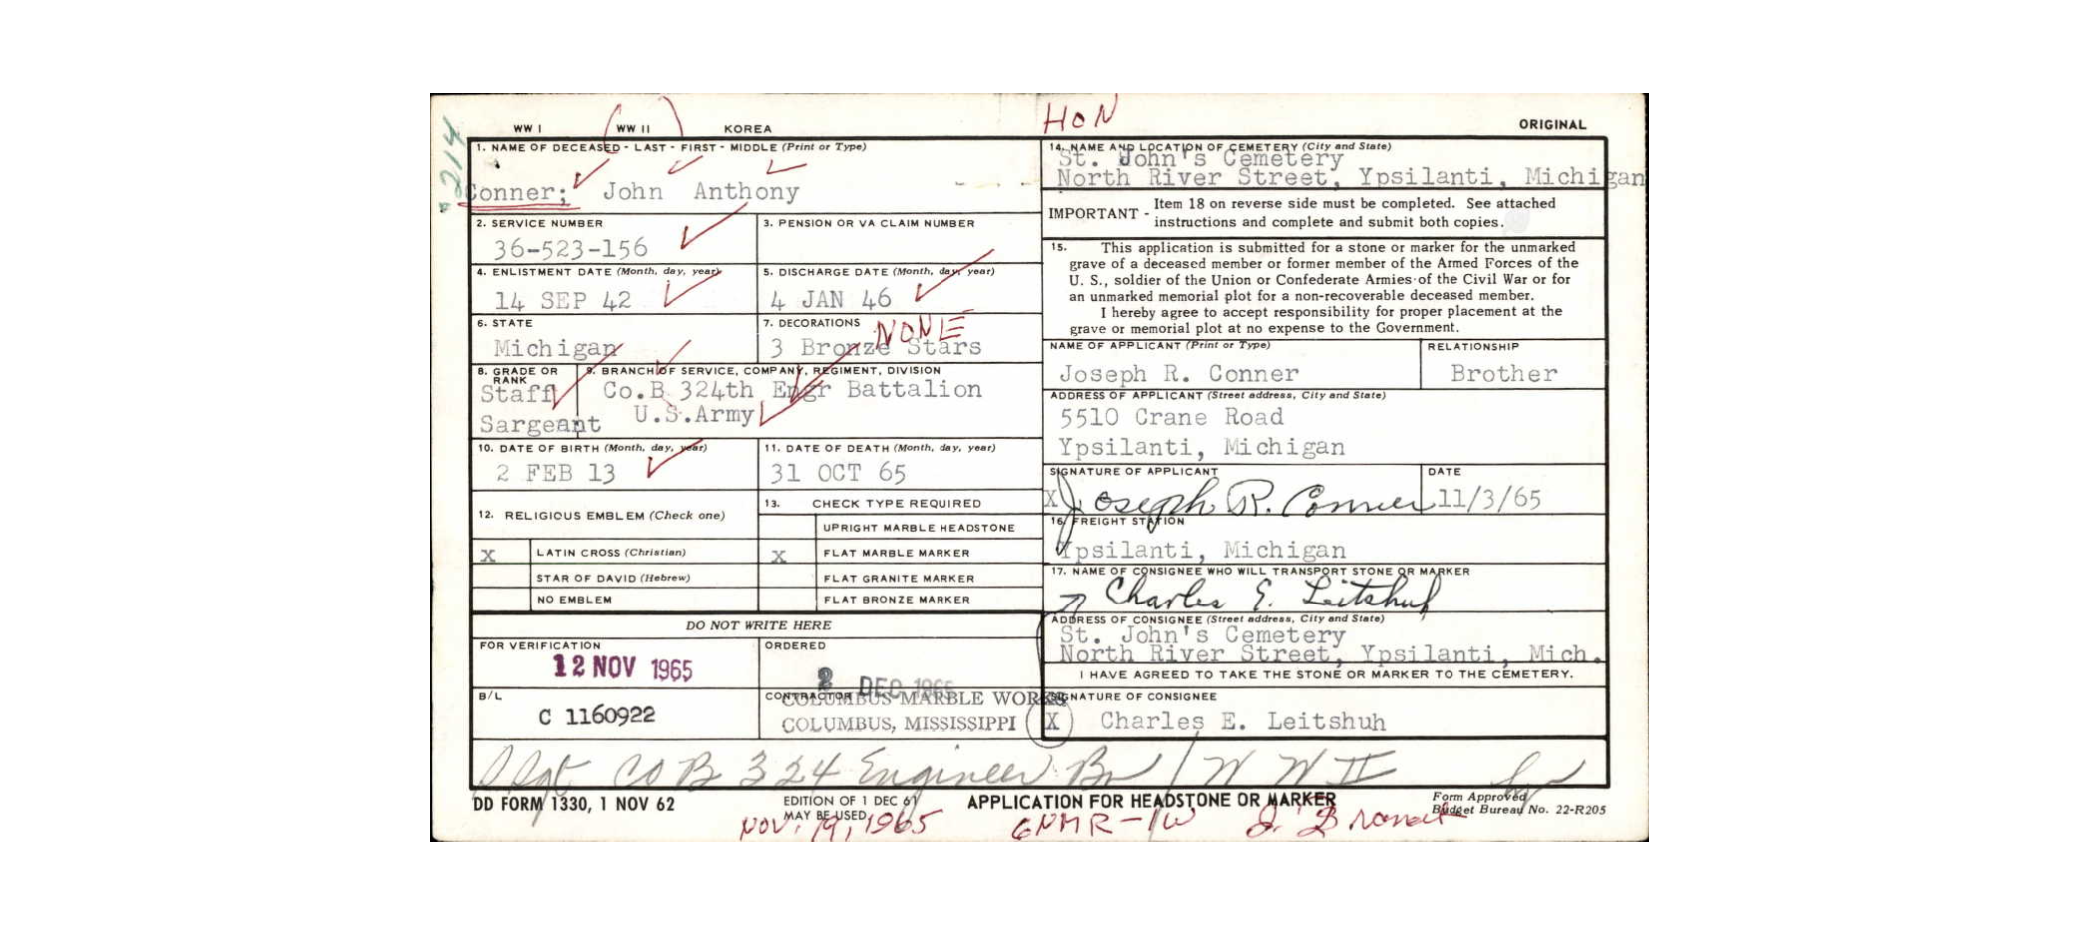 WW I WW II KOREA
HON
ORIGINAL
214
1. NAME OF DECEASED - LAST - FIRST - MIDDLE (Print or Type)
Conner; John Anthony
2. SERVICE NUMBER
36-523-156
3. PENSION OR VA CLAIM NUMBER
4. ENLISTMENT DATE (Month, day, year)
14 SEP 42
5. DISCHARGE DATE (Month, day, year)
4 JAN 46
6. STATE
Michigan
7. DECORATIONS
NONE
3 Bronze Stars
8. GRADE OR RANK
Staff
Sargeant
9. BRANCH OF SERVICE, COMPANY, REGIMENT, DIVISION
Co.B 324th Engr Battalion
U.S.Army
10. DATE OF BIRTH (Month, day, year)
2 FEB 13
11. DATE OF DEATH (Month, day, year)
31 OCT 65
12. RELIGIOUS EMBLEM (Check one)
X LATIN CROSS (Christian)
STAR OF DAVID (Hebrew)
NO EMBLEM
13. CHECK TYPE REQUIRED
UPRIGHT MARBLE HEADSTONE
X FLAT MARBLE MARKER
FLAT GRANITE MARKER
FLAT BRONZE MARKER
DO NOT WRITE HERE
FOR VERIFICATION
12 NOV 1965
ORDERED
2 DEC 1965
B/L
C 1160922
CONTRACTOR
COLUMBUS MARBLE WORKS
COLUMBUS, MISSISSIPPI
14. NAME AND LOCATION OF CEMETERY (City and State)
St. John's Cemetery
North River Street, Ypsilanti, Michigan
IMPORTANT - Item 18 on reverse side must be completed. See attached
instructions and complete and submit both copies.
15. This application is submitted for a stone or marker for the unmarked
grave of a deceased member or former member of the Armed Forces of the
U. S., soldier of the Union or Confederate Armies of the Civil War or for
an unmarked memorial plot for a non-recoverable deceased member.
I hereby agree to accept responsibility for proper placement at the
grave or memorial plot at no expense to the Government.
NAME OF APPLICANT (Print or Type)
Joseph R. Conner
RELATIONSHIP
Brother
ADDRESS OF APPLICANT (Street address, City and State)
5510 Crane Road
Ypsilanti, Michigan
SIGNATURE OF APPLICANT
X Joseph R. Conner
DATE
11/3/65
16. FREIGHT STATION
Ypsilanti, Michigan
17. NAME OF CONSIGNEE WHO WILL TRANSPORT STONE OR MARKER
Charles E. Leitshuh
ADDRESS OF CONSIGNEE (Street address, City and State)
St. John's Cemetery
North River Street, Ypsilanti, Mich.
I HAVE AGREED TO TAKE THE STONE OR MARKER TO THE CEMETERY.
SIGNATURE OF CONSIGNEE
X Charles E. Leitshuh
SSgt CO B 324 Engineer Bn / W W II
DD FORM 1330, 1 NOV 62
EDITION OF 1 DEC 61
MAY BE USED
APPLICATION FOR HEADSTONE OR MARKER
Form Approved
Budget Bureau No. 22-R205
NOV. 19, 1965